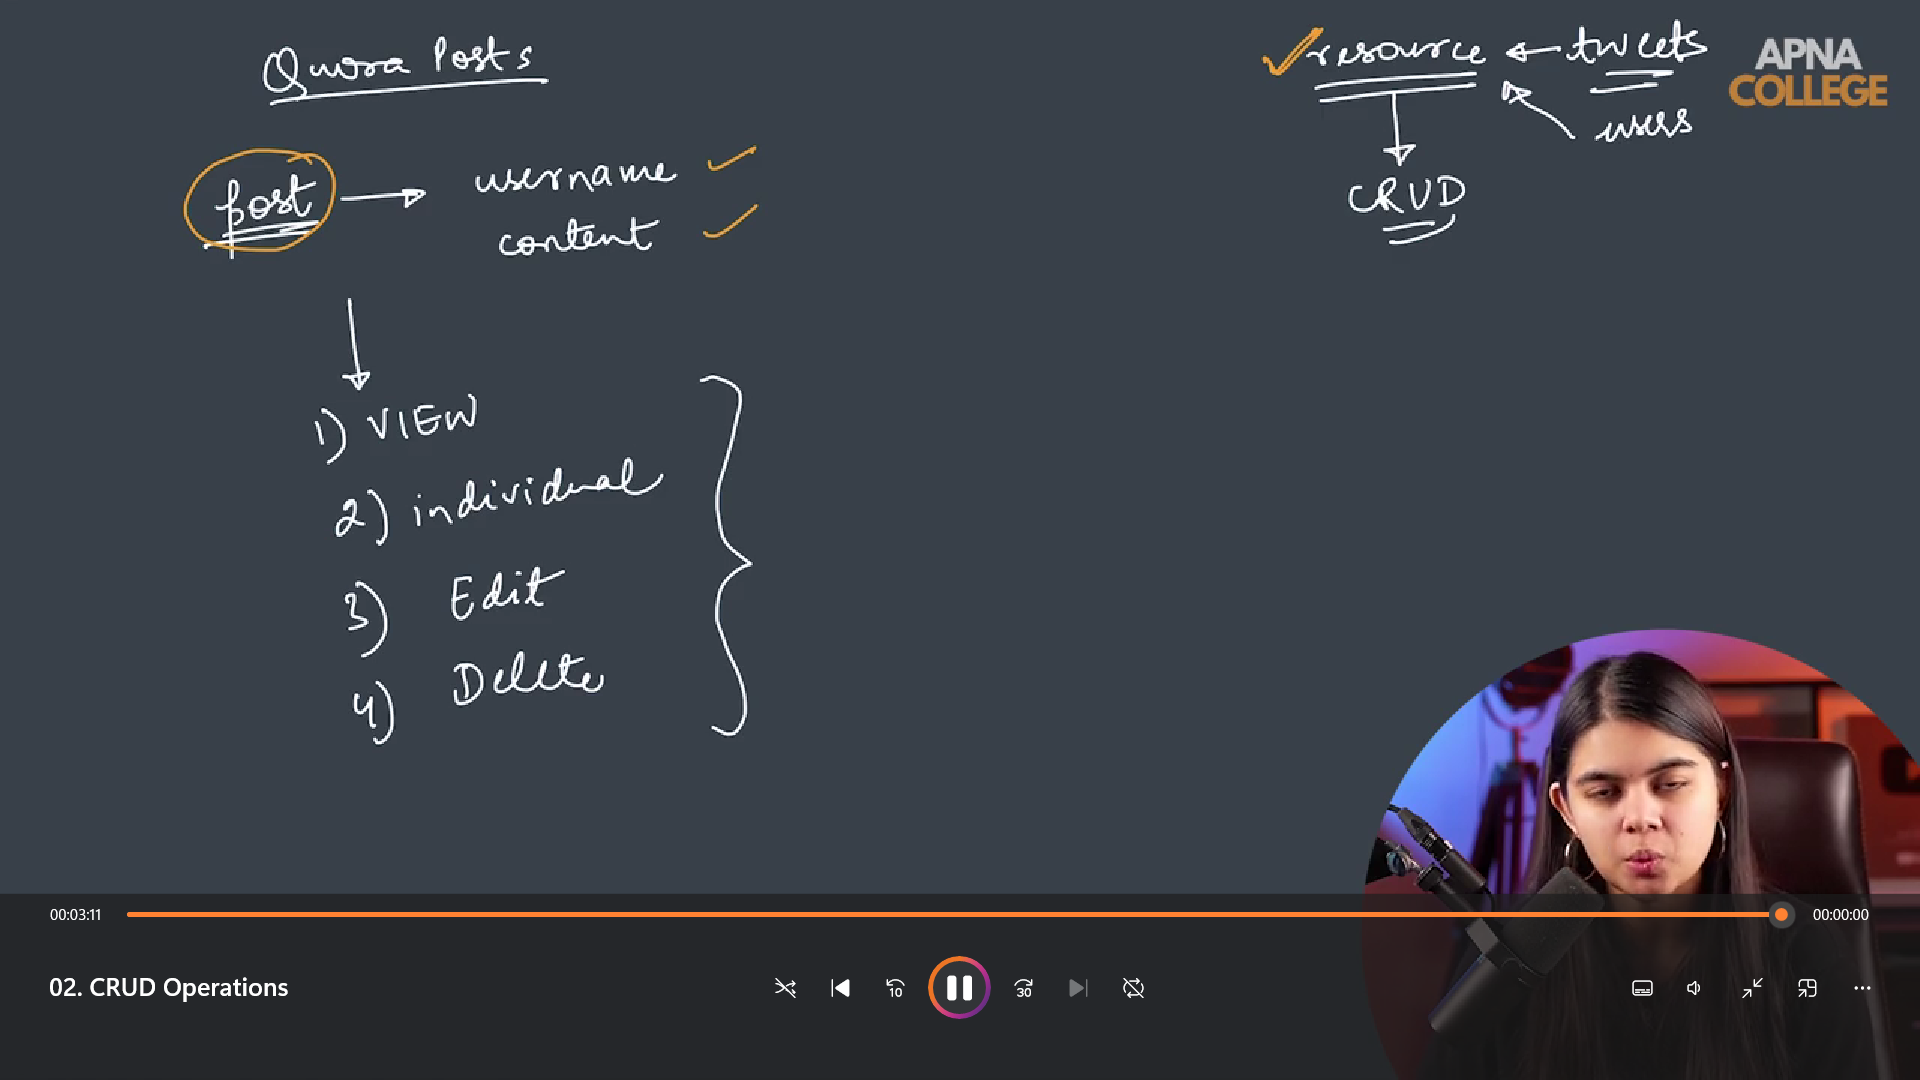 Quora Posts
post → username
content
1) VIEW
2) individual
3) Edit
4) Delete
resource ← tweets
users
CRUD
APNA
COLLEGE
00:03:11
00:00:00
02. CRUD Operations
10
30